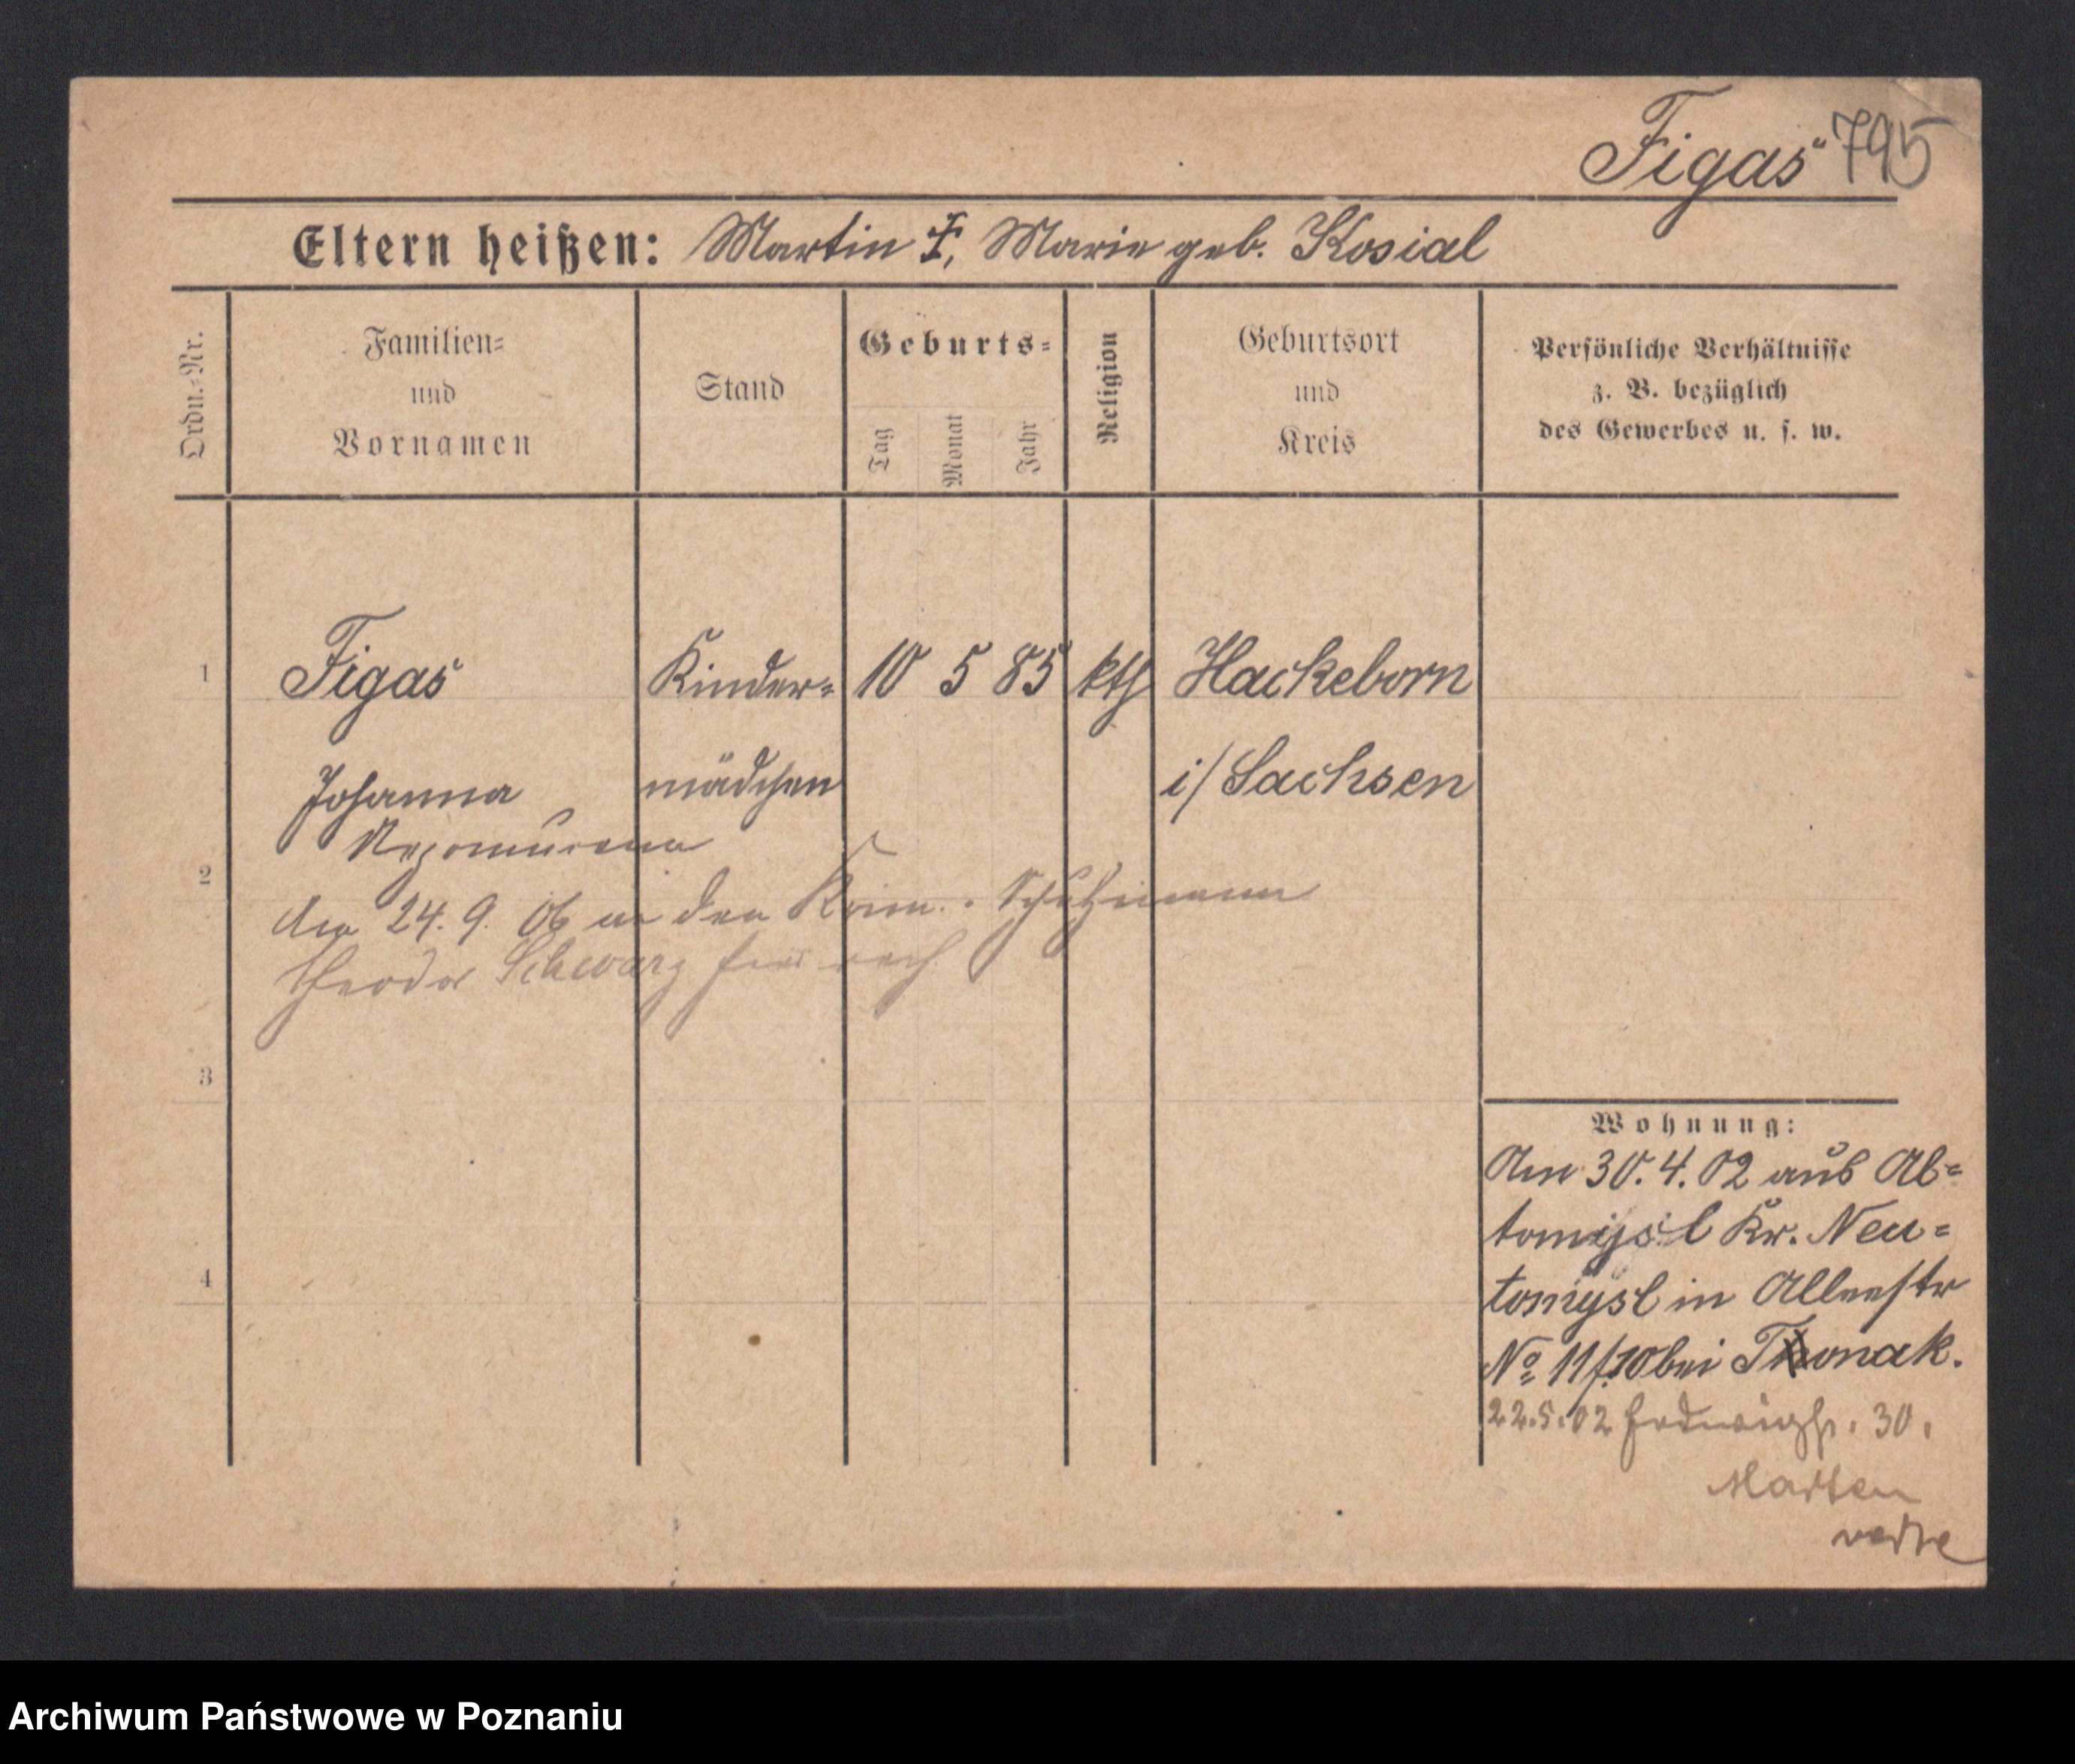 Figas 795
Eltern heißen: Martin F, Marie geb. Kosial
Ordn.=Nr.
Familien=
und
Vornamen
Stand
Geburts=
Tag
Monat
Jahr
Religion
Geburtsort
und
Kreis
Persönliche Verhältnisse
z. B. bezüglich
des Gewerbes u. s. w.
1 Figas Kinder= 10 5 85 kth Hackeborn
Johanna mädchen i/ Sachsen
2
Am 24. 9. 06 an den Krim. Schutzmann
Theodor Schwarz
3
4
Wohnung:
Am 30. 4. 02 aus Al=
tomysl Kr. Neu=
tomysl in Alleestr
No 11 bei Tonak.
22.5.02 30.